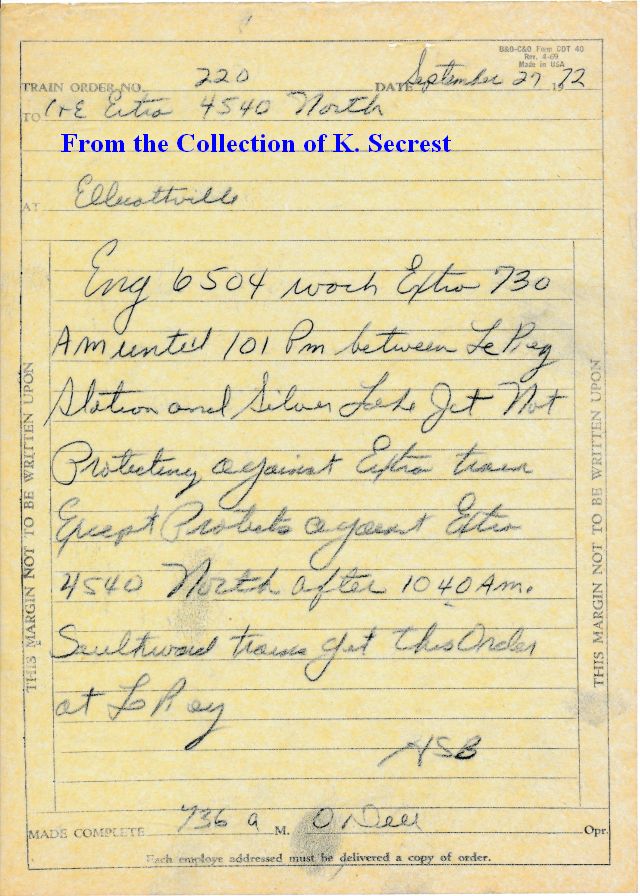 B&O-C&O Form CDT 40
Rev. 4-69
Made in USA
TRAIN ORDER NO. 220 DATE September 27 1972
TO C+E Extra 4540 North
From the Collection of K. Secrest
AT Ellicottville
Eng 6504 work Extra 730
Am until 101 Pm between Le Roy
Station and Silver Lake Jct Not
Protecting against Extra train
Except Protects against Extra
4540 North after 1040 Am.
Southward trains get this Order
at Le Roy
HSB
MADE COMPLETE 736 a M. O Dell Opr.
Each employe addressed must be delivered a copy of order.
THIS MARGIN NOT TO BE WRITTEN UPON
THIS MARGIN NOT TO BE WRITTEN UPON